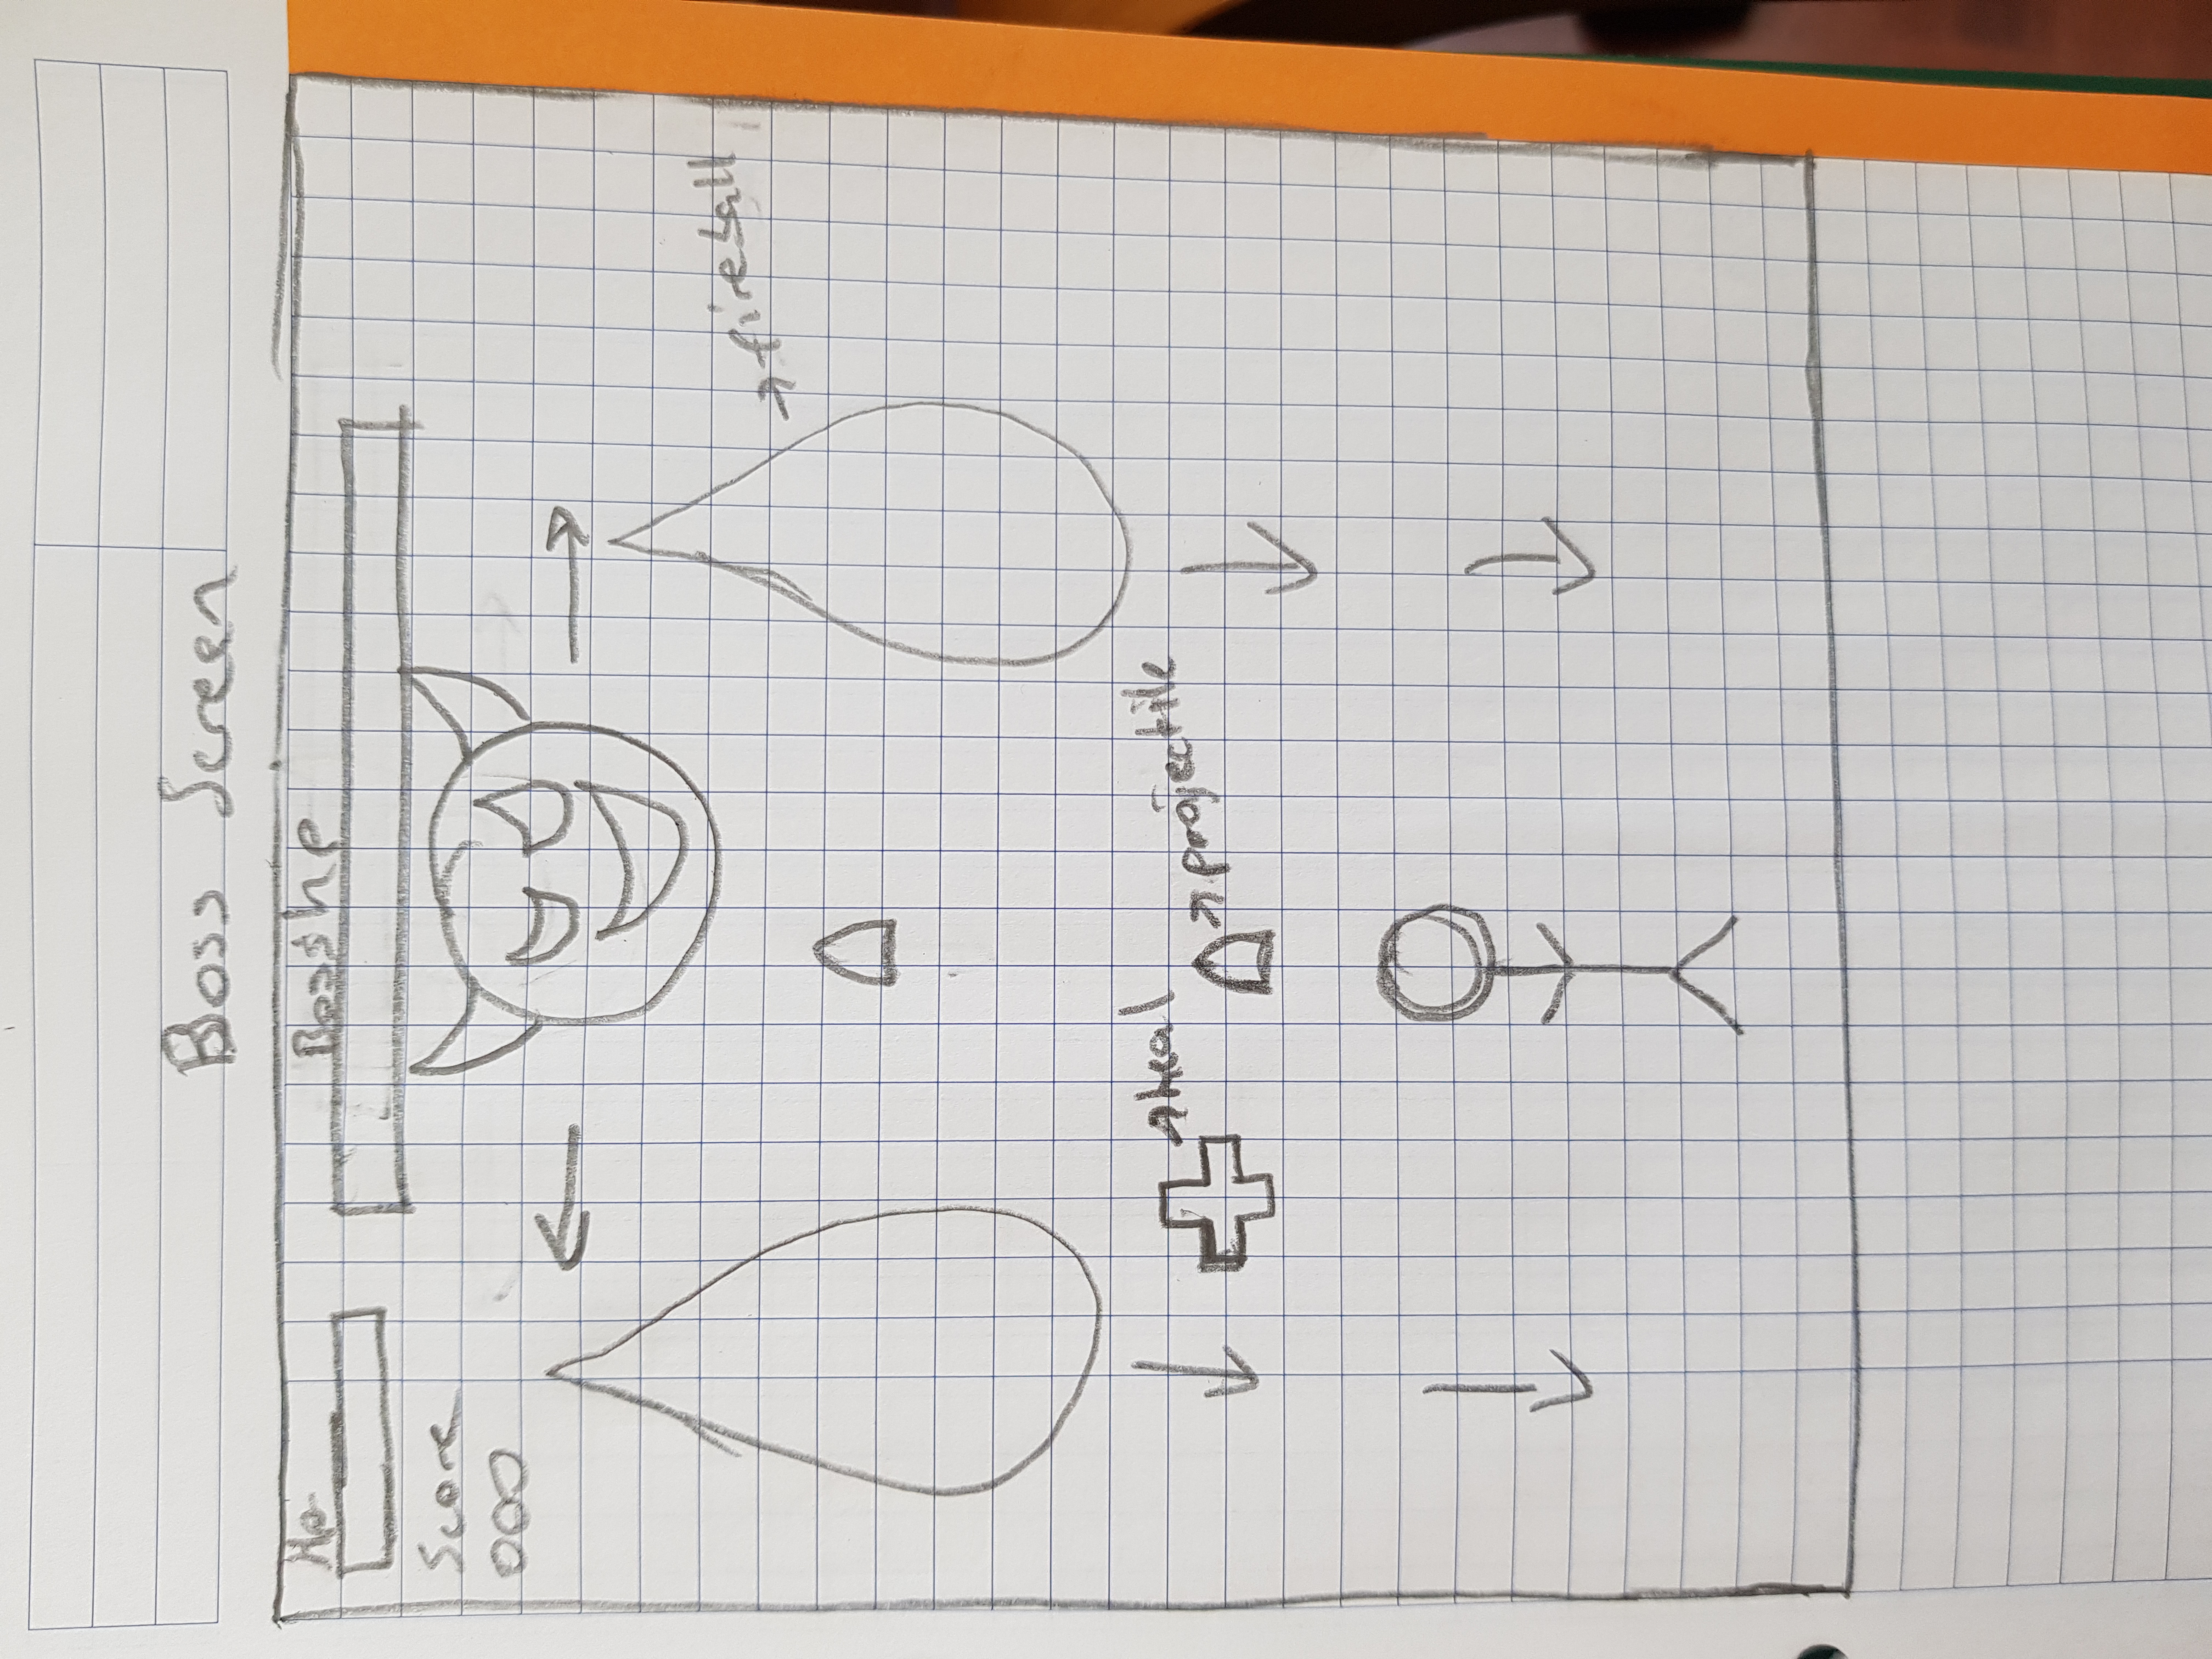 Boss Screen
Hp
Boss hp
Score
000
→ fireball
→ heal
→ projectile